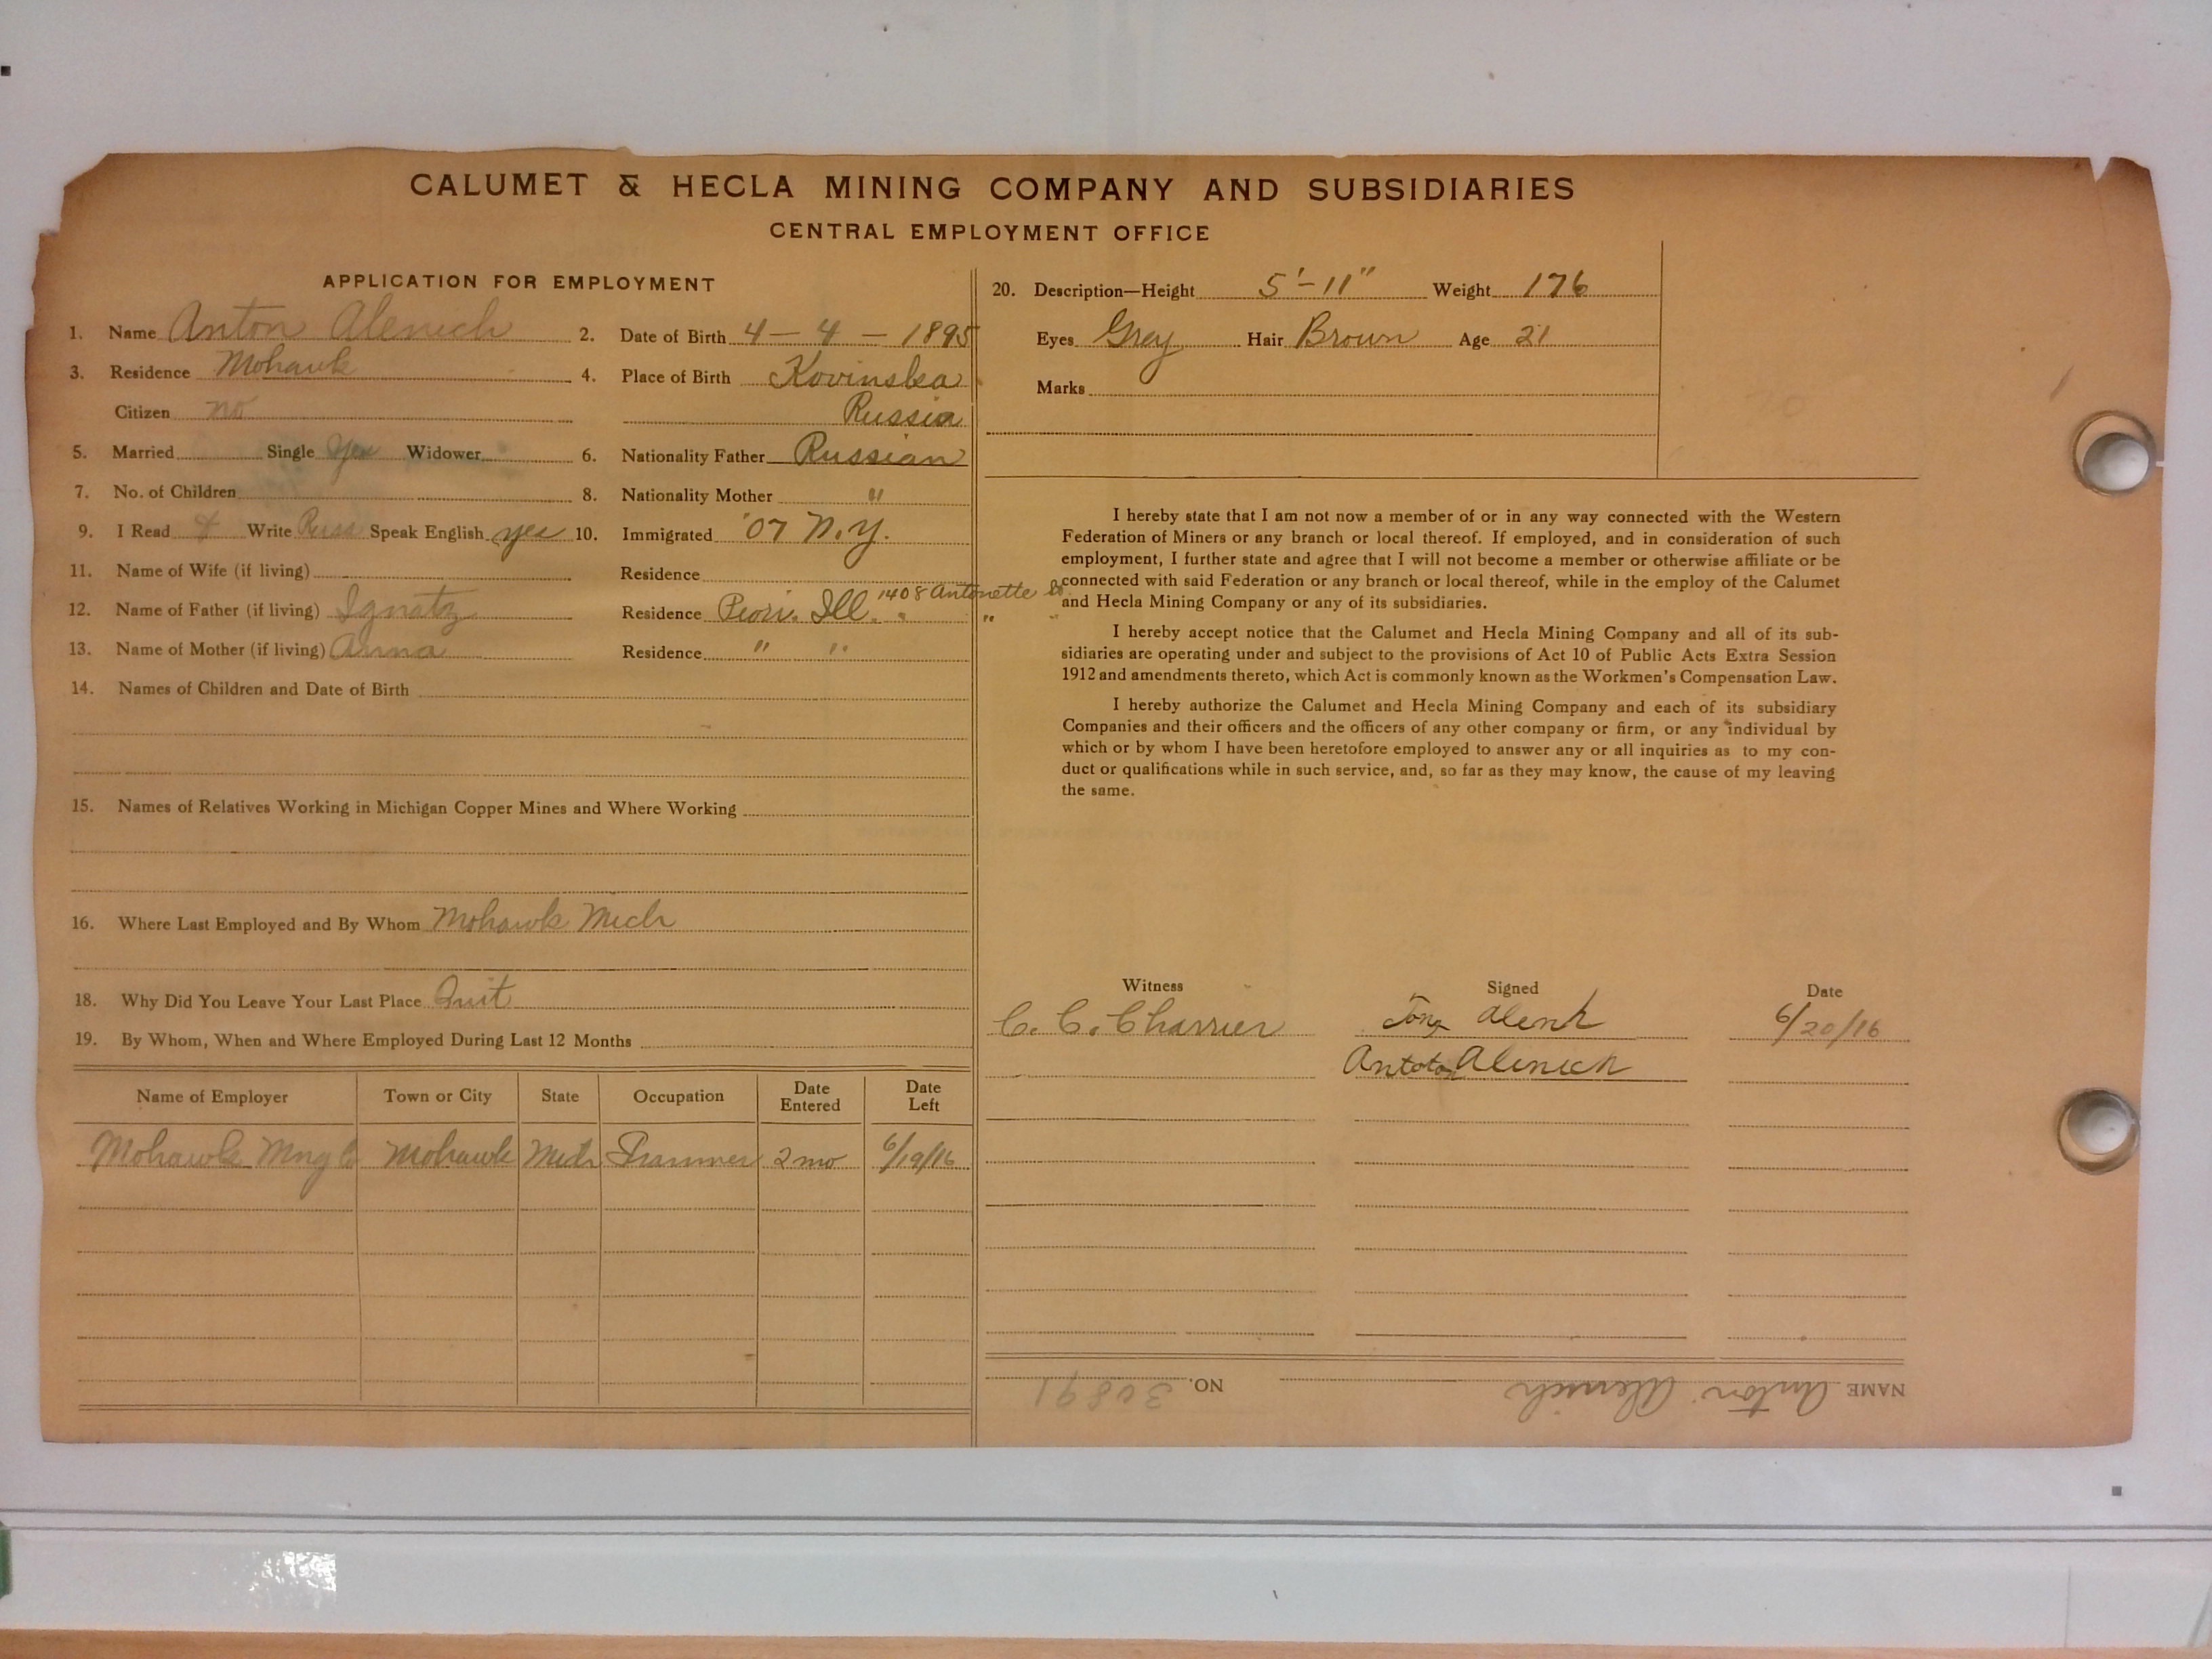 CALUMET & HECLA MINING COMPANY AND SUBSIDIARIES
CENTRAL EMPLOYMENT OFFICE
APPLICATION FOR EMPLOYMENT
1. Name Anton Alenich 2. Date of Birth 4 – 4 – 1895
3. Residence Mohawk 4. Place of Birth Kovinska
Citizen no Russia
5. Married Single Yes Widower 6. Nationality Father Russian
7. No. of Children 8. Nationality Mother "
9. I Read & Write Russ Speak English yes 10. Immigrated '07 N.Y.
11. Name of Wife (if living) Residence
12. Name of Father (if living) Ignatz Residence Peori. Ill. 1408 Antonette St
13. Name of Mother (if living) Anna Residence " "  " "
14. Names of Children and Date of Birth
15. Names of Relatives Working in Michigan Copper Mines and Where Working
16. Where Last Employed and By Whom Mohawk Mich
18. Why Did You Leave Your Last Place Quit
19. By Whom, When and Where Employed During Last 12 Months
Name of Employer Town or City State Occupation Date Entered Date Left
Mohawk Mng Co Mohawk Mich Trammer 2 mo 6/19/16
20. Description—Height 5'-11" Weight 176
Eyes Grey Hair Brown Age 21
Marks
I hereby state that I am not now a member of or in any way connected with the Western
Federation of Miners or any branch or local thereof. If employed, and in consideration of such
employment, I further state and agree that I will not become a member or otherwise affiliate or be
connected with said Federation or any branch or local thereof, while in the employ of the Calumet
and Hecla Mining Company or any of its subsidiaries.
I hereby accept notice that the Calumet and Hecla Mining Company and all of its sub-
sidiaries are operating under and subject to the provisions of Act 10 of Public Acts Extra Session
1912 and amendments thereto, which Act is commonly known as the Workmen's Compensation Law.
I hereby authorize the Calumet and Hecla Mining Company and each of its subsidiary
Companies and their officers and the officers of any other company or firm, or any individual by
which or by whom I have been heretofore employed to answer any or all inquiries as to my con-
duct or qualifications while in such service, and, so far as they may know, the cause of my leaving
the same.
Witness Signed Date
C. C. Charrier Tony Alenk 6/20/16
Antoton Alenich
NAME Anton Alenich NO. 30891